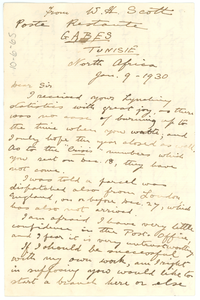 From W. H. Scott
Poste Restante
GABES
TUNISIE
North Africa
Jan. 9 - 1930
Dear Sir
I received your Lynching
statistics with great joy as there
was no case of burning up to
the time when you wrote, and
I only hope the year closed as well.
As to the "Crisis" numbers which
you sent on Dec. 18, they have
not come.
I was told a parcel was
dispatched also from London
England, on or before Dec. 27, which
has also not arrived.
I am afraid I have very little
confidence in the Post Office,
and I fear it is very
If I should be successful
with my own work, am I right
in supposing you would like to
start a branch here or else